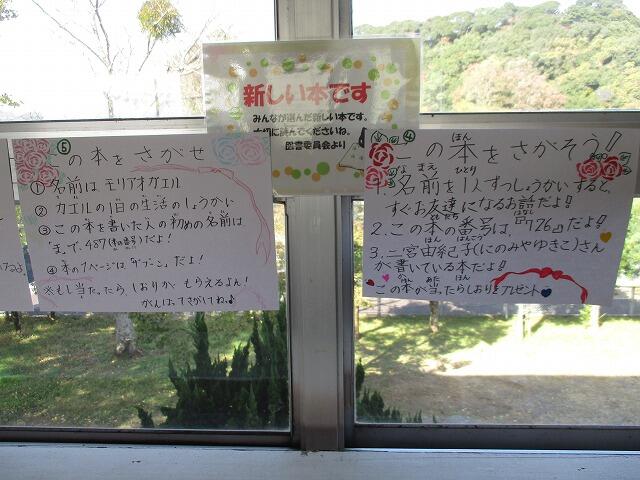 新しい本です
みんなが選んだ新しい本です。
大切に読んでくださいね。
図書委員会より
⑤
この本をさがせ
① 名前は モリアオガエル
② カエルの1日の生活のしょうかい
③ この本を書いた人の初めの名前は
「ま」で、487(本の番号)だよ!
④ 本の1ページは
だよ!
※もし当たったら しおりが もらえるよん!
がんばってさがしてね♪
④
この本をさがそう!
ほん
なまえ ひとり
1. 名前を1人ずつしょうかいすると、
すぐお友達になるお話だよ!!
2. この本の番号は、「726」だよ!
3. 二宮由紀子(にのみやゆきこ)さん
が書いている本だよ!
この本が当ったらしおりをプレゼント